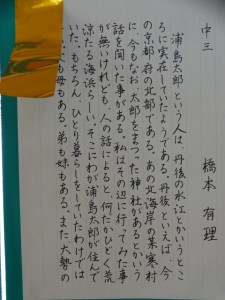 中三　橋本　有理
浦島太郎という人は、丹後の水江とかいうとこ
ろに実在していたようである。丹後といえば、今
の京都府の北部である。あの北海岸の某寒村
に、今もなお、太郎をまつった神社があるとかいう
話を聞いた事がある。私はその辺に行ってみた事
が無いけれども、人の話によると、何だかひどく荒
涼たる海浜らしい。そこにわが浦島太郎が住んで
いた。もちろん、ひとり暮らしをしていたわけでは
父も母もある。弟も妹もある。また、大勢の